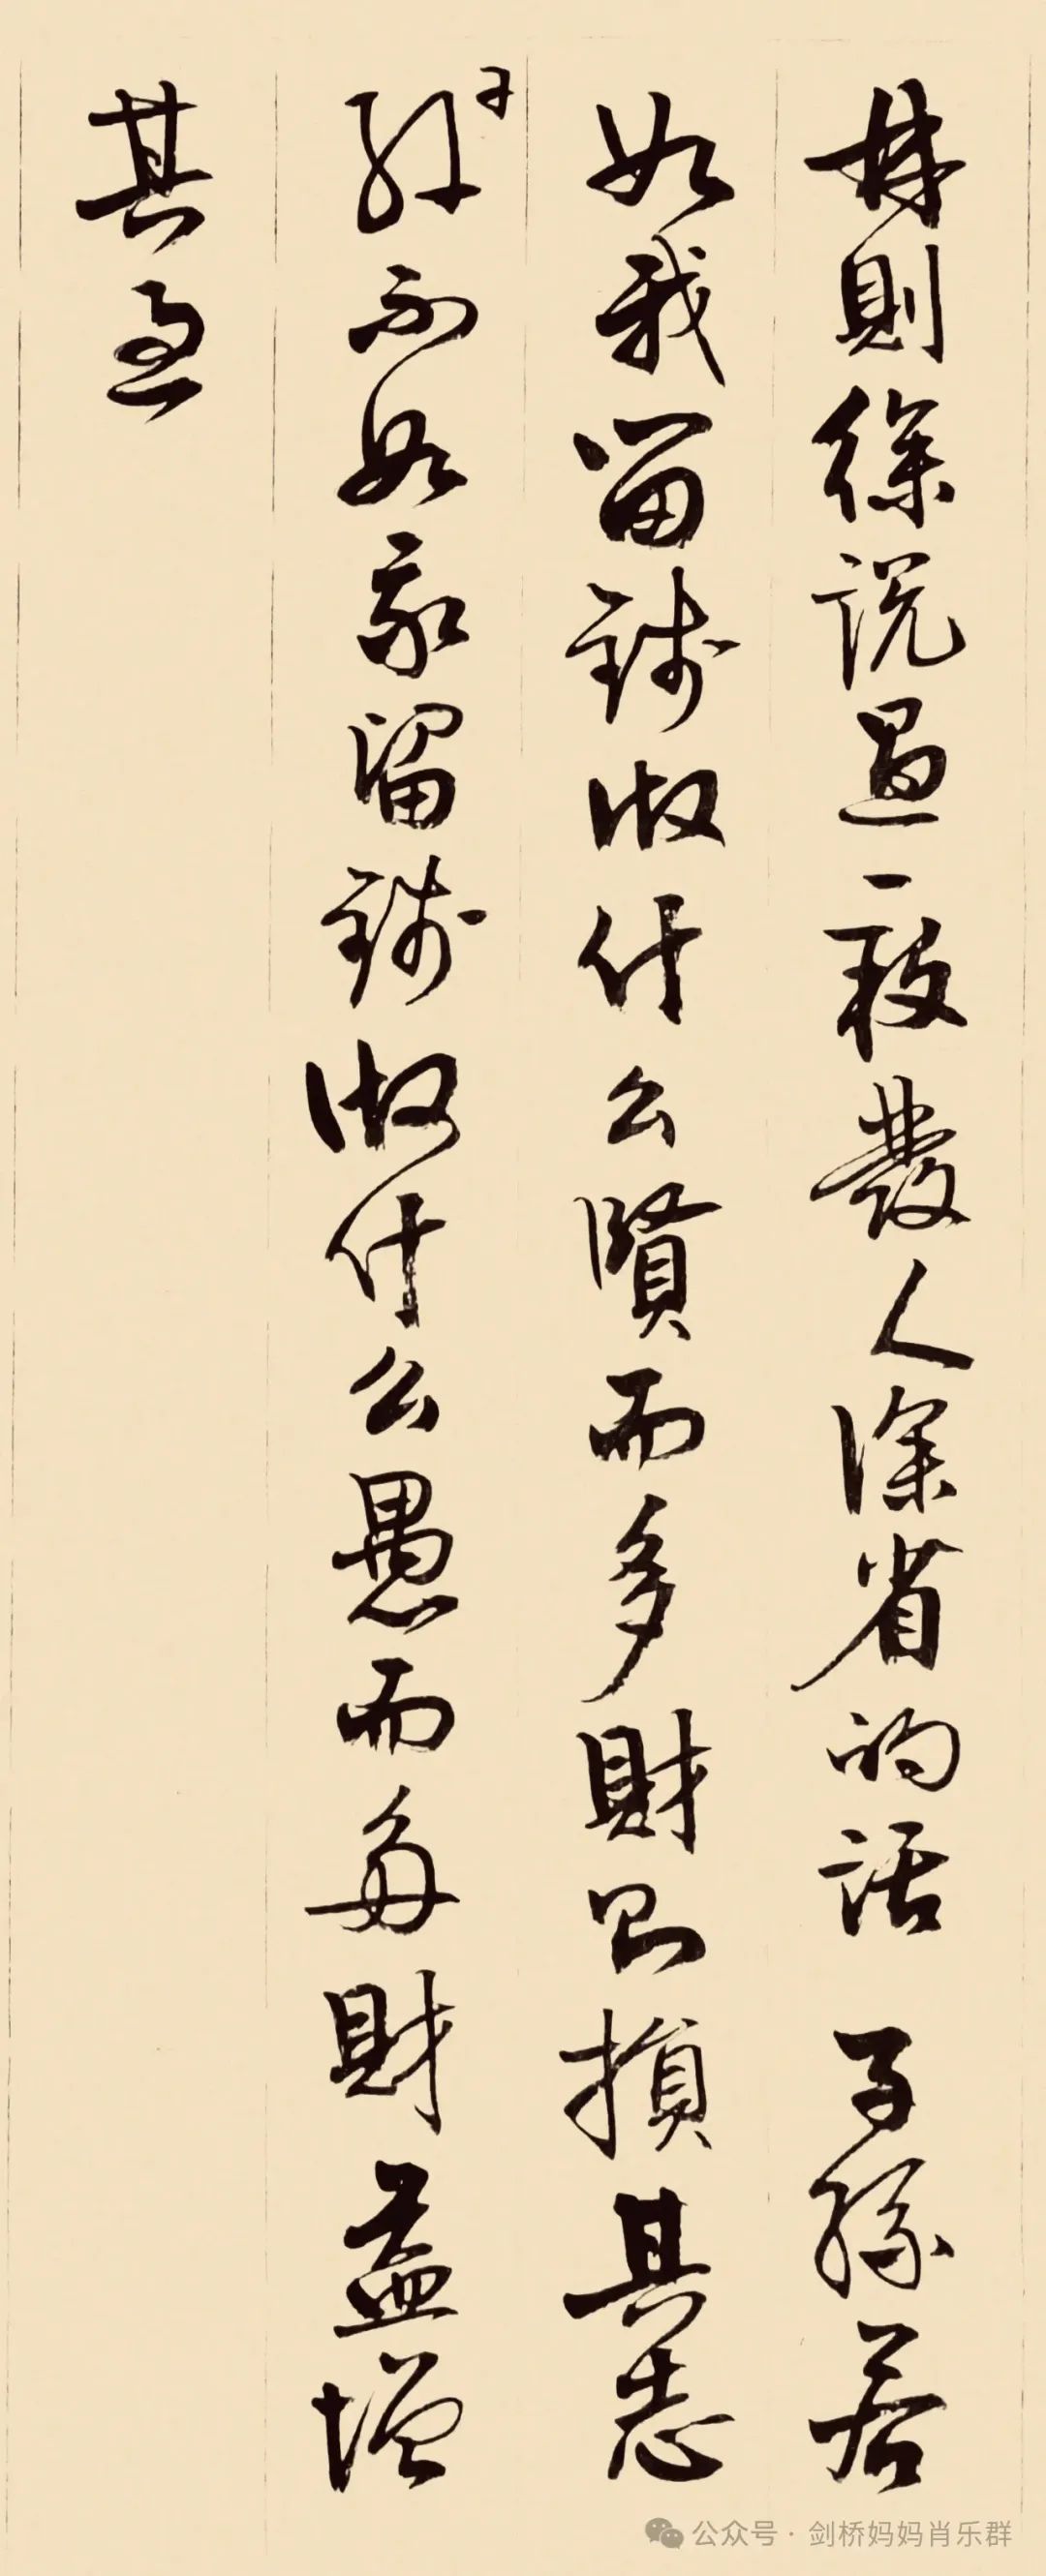 林則徐說過一段發人深省的話 子孫若
如我留錢做什么賢而多財則損其志
子孫不如我留錢做什么愚而多財益增
其過
公众号·剑桥妈妈肖乐群